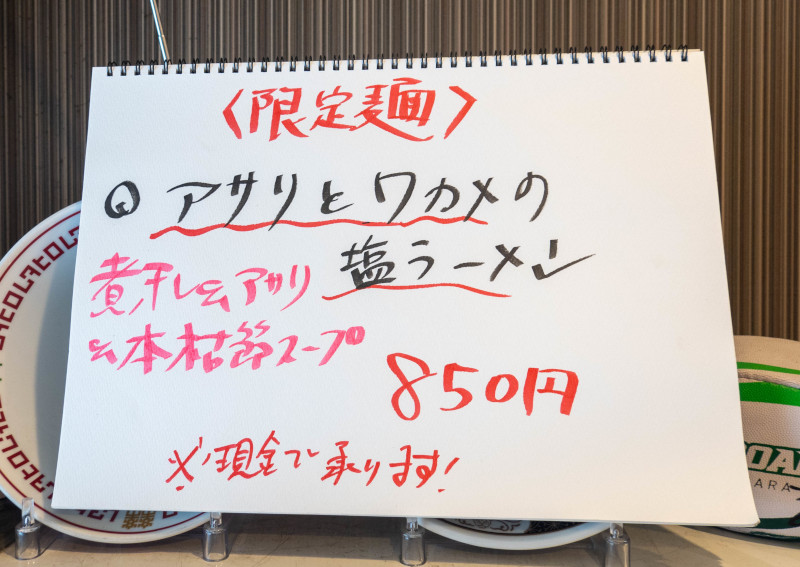 〈限定麺〉
◎ アサリとワカメの
塩ラーメン
煮干しとアサリ
と本枯節スープ
850円
※現金で承ります!
ARA